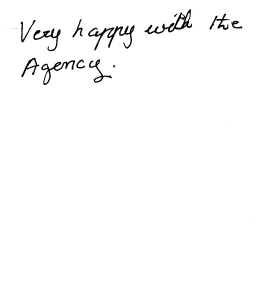 Very happy with the
Agency.